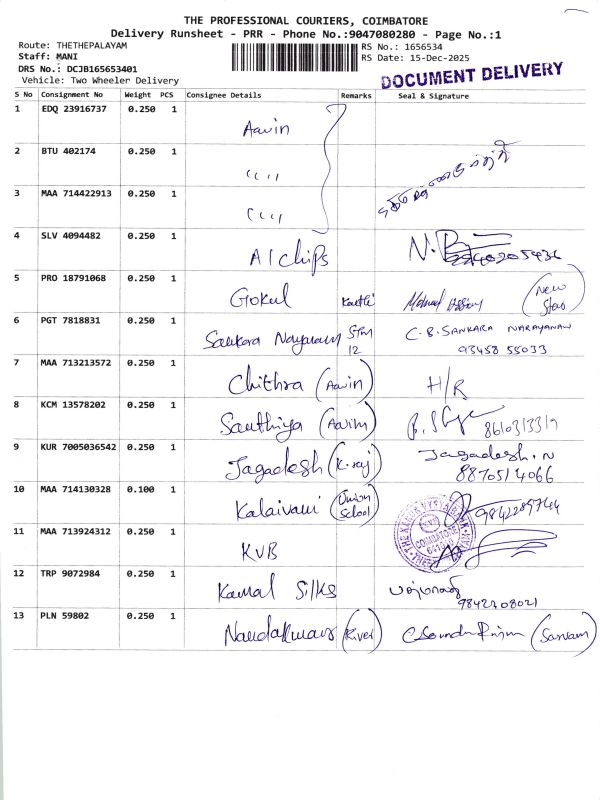 THE PROFESSIONAL COURIERS, COIMBATORE
Delivery Runsheet - PRR - Phone No.:9047080280 - Page No.:1
Route: THETHEPALAYAM
RS No.: 1656534
Staff: MANI
RS Date: 15-Dec-2025
DRS No.: DCJB165653401
Vehicle: Two Wheeler Delivery
DOCUMENT DELIVERY
S No Consignment No Weight PCS Consignee Details Remarks Seal & Signature
1 EDQ 23916737 0.250 1 Aavin
2 BTU 402174 0.250 1 ,, ,,
3 MAA 714422913 0.250 1 ,, ,,
4 SLV 4094482 0.250 1 A1 chips
5 PRO 18791068 0.250 1 Gokul (New Star)
6 PGT 7818831 0.250 1 Sankara Narayanan 12 C.B. SANKARA NARAYANAN
93458 55033
7 MAA 713213572 0.250 1 Chithra (Aavin) H/R
8 KCM 13578202 0.250 1 Santhiya (Aavin)
9 KUR 7005036542 0.250 1 Jagadesh (K.raj) Jagadesh.N
8870514066
10 MAA 714130328 0.100 1 Kalaivani (Union School)
11 MAA 713924312 0.250 1 KVB
12 TRP 9072984 0.250 1 Kamal Silks
9842208021
13 PLN 59802 0.250 1 Nandakumar (River)